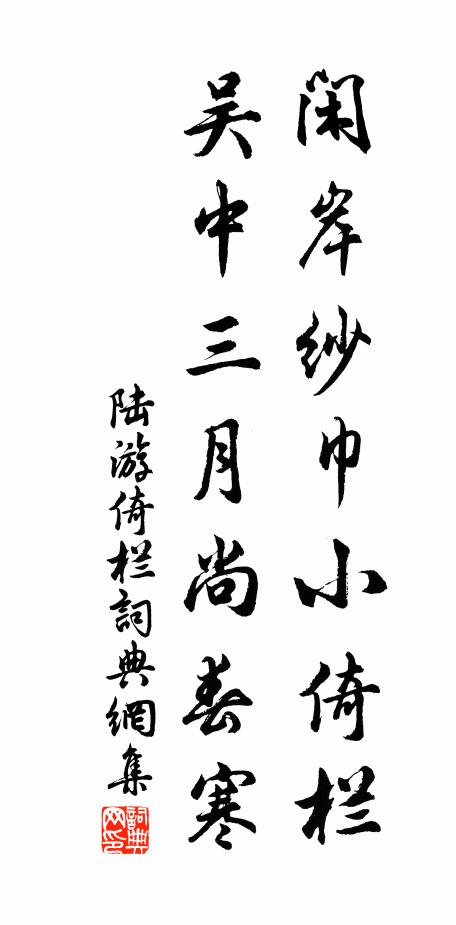 闲岸纱巾小倚栏
吴中三月尚春寒
陆游倚栏詞典網集
詞典网印